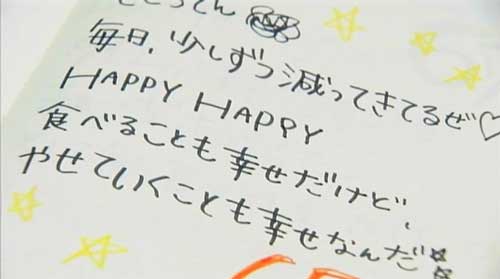 毎日、少しずつ減ってきてるぜ♡
HAPPY HAPPY
食べることも幸せだけど、
やせていくことも幸せなんだ☆